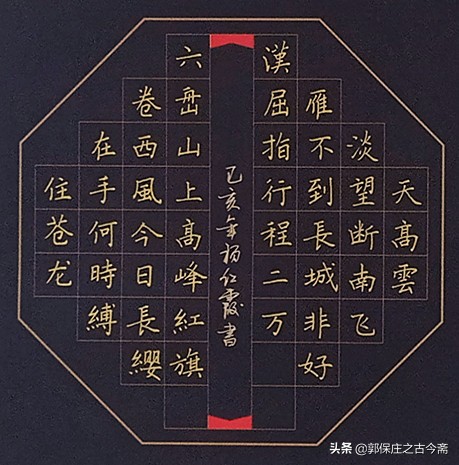 天高雲
淡望断南飞
雁不到長城非好
漢屈指行程二万
己亥年杨红霞書
六盘山上高峰紅旗
卷西風今日長纓
在手何時縛
住苍龙
头条 @郭保庄之古今斋